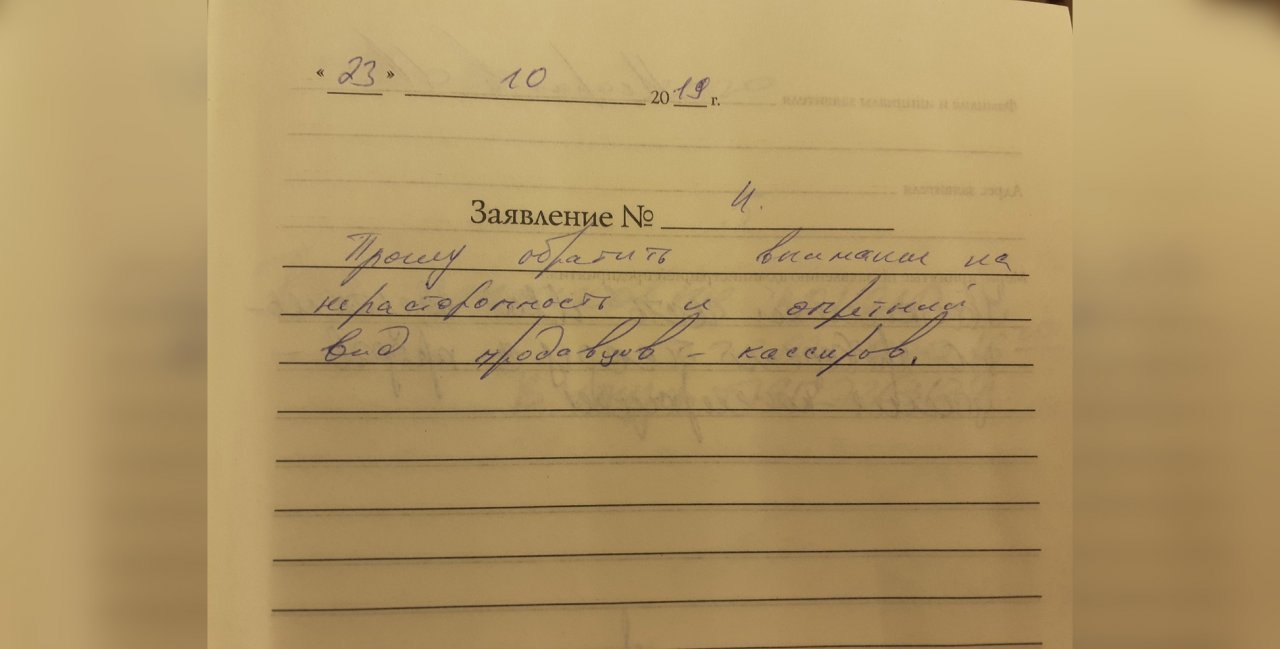 « 23 » 10 2019 г.
Заявление № 4.
Прошу обратить внимание на
нерасторопность и опрятный
вид продавцов - кассиров.